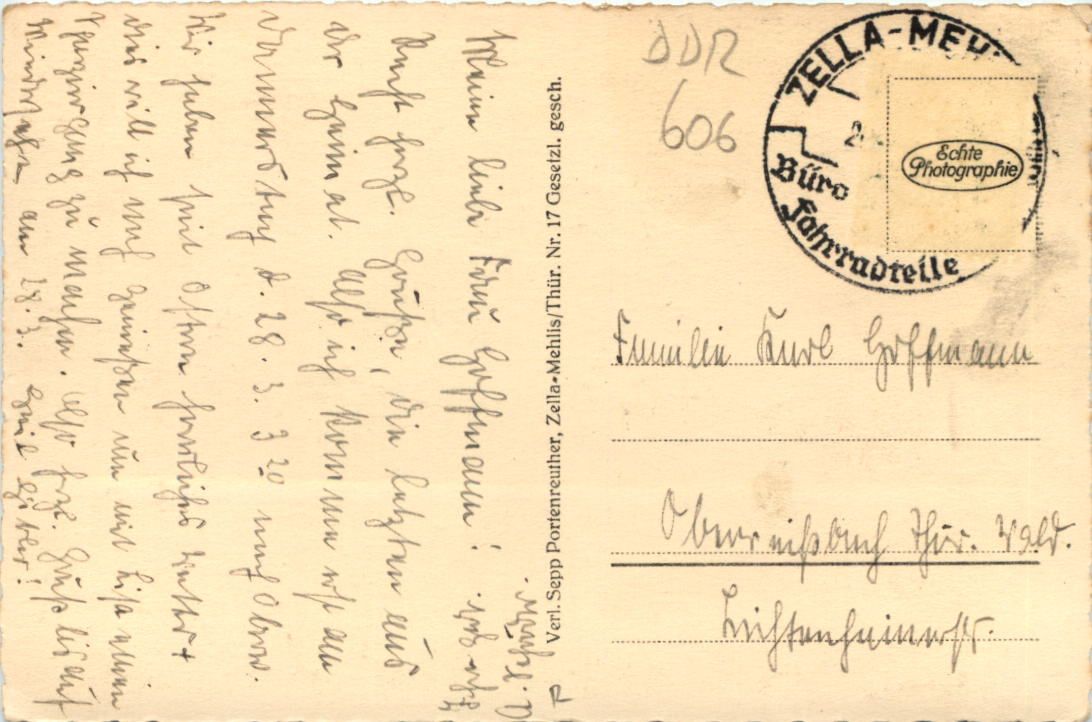 Meine liebe Frau Hoffmann!
Recht herzl. Grüße, die letzten aus
der Heimat. Also ich komme erst am
Donnerstag d. 28. 3. 3 20 nach Ober.
Wir haben seit Ostern herrliches Wetter +
dies will ich noch genießen um mit einen
Spaziergang zu machen. Also hrz. Gruß bis auf
Wiedersehen am 28.3. Heil Hitler!
Verl. Sepp Portenreuther, Zella-Mehlis/Thür. Nr. 17 Gesetzl. gesch.
DDR
606
ZELLA-MEH
Büro
Fahrradteile
Echte
Photographie
Familie Karl Hoffmann
Oberweißbach Thür. Wald.
Lichtenhainerstr.